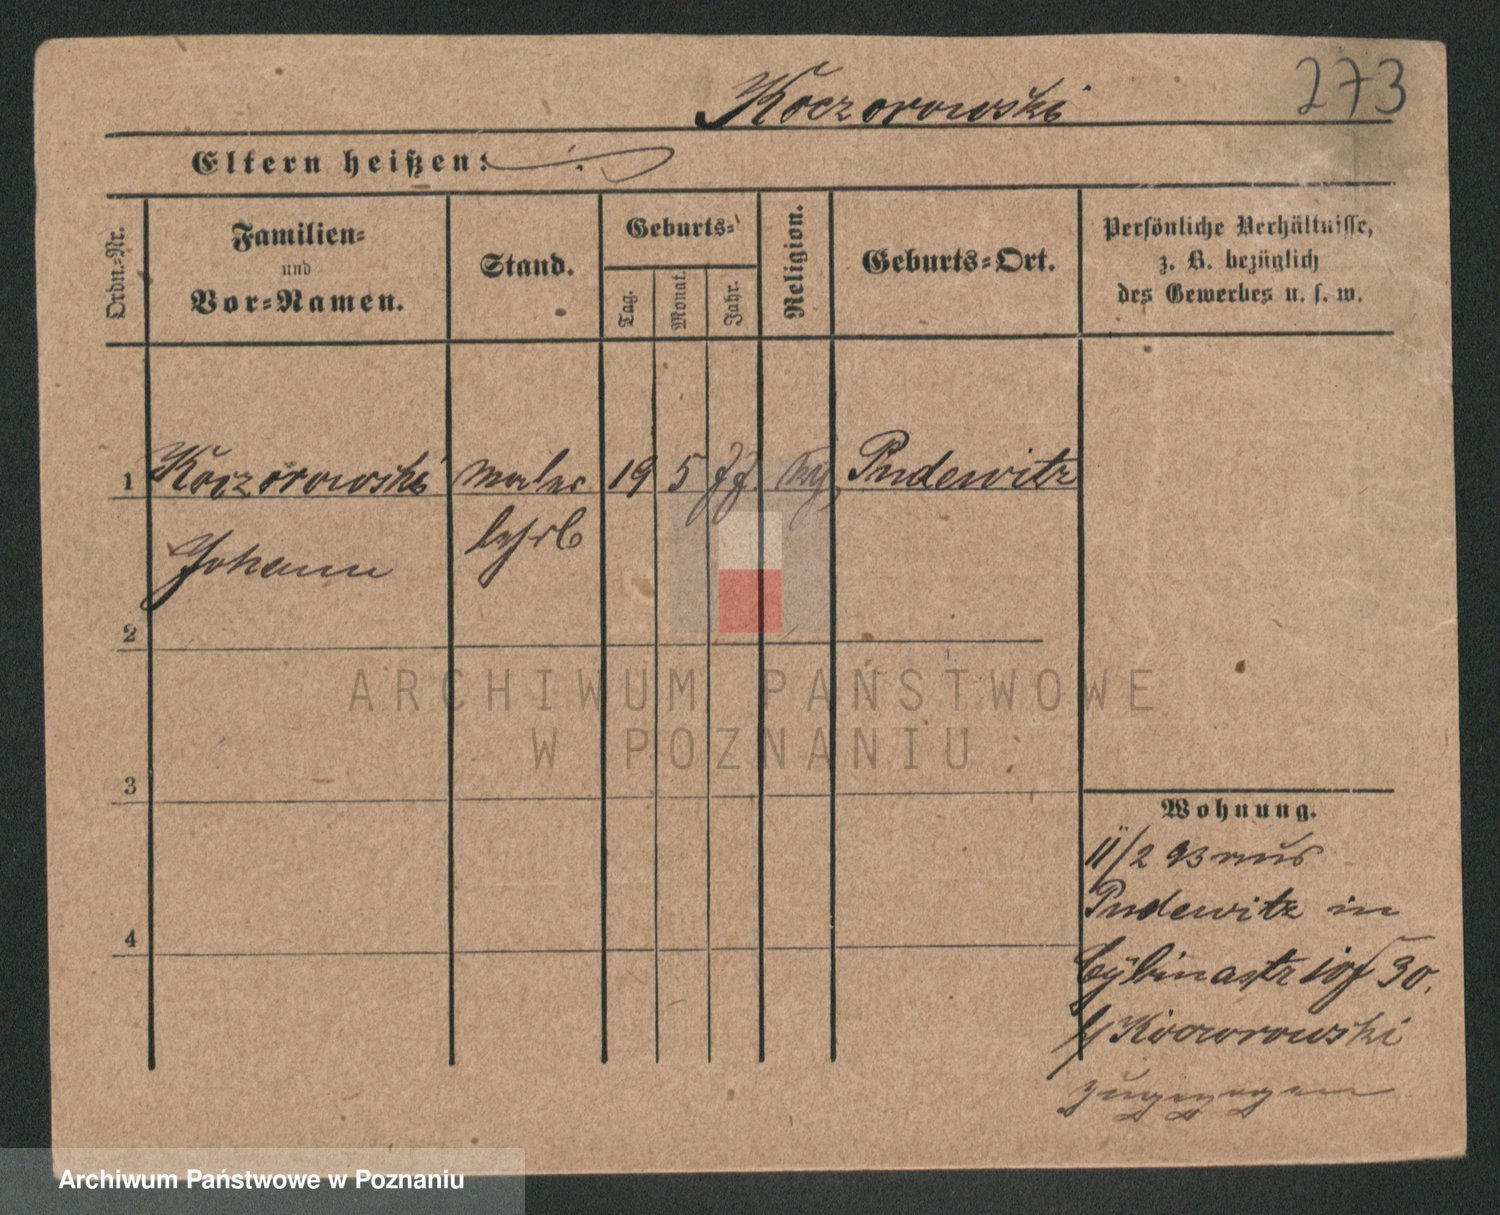 Koczorowski
273
Eltern heißen:
Ordn.-Nr.
Familien-
und
Vor-Namen.
Stand.
Geburts-
Tag.
Monat.
Jahr.
Religion.
Geburts-Ort.
Persönliche Verhältnisse,
z. B. bezüglich
des Gewerbes u. s. w.
1 Koczorowski Maler 19 5 77. Pudewitz
Johann
2
3
4
Wohnung.
11/2 93 aus
Pudewitz in
Cybinastr 30.
Koczorowski
zugezogen
ARCHIWUM PAŃSTWOWE
W POZNANIU
Archiwum Państwowe w Poznaniu